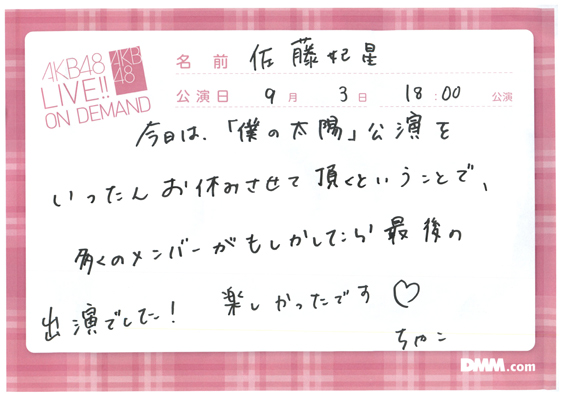 AKB48
LIVE!!
ON DEMAND
AKB
48
名前 佐藤妃星
公演日 9月 3日 18:00 公演
今日は、「僕の太陽」公演を
いったんお休みさせて頂くということで、
多くのメンバーがもしかしたら最後の
出演でした! 楽しかったです♡
ちゃこ
DMM.com